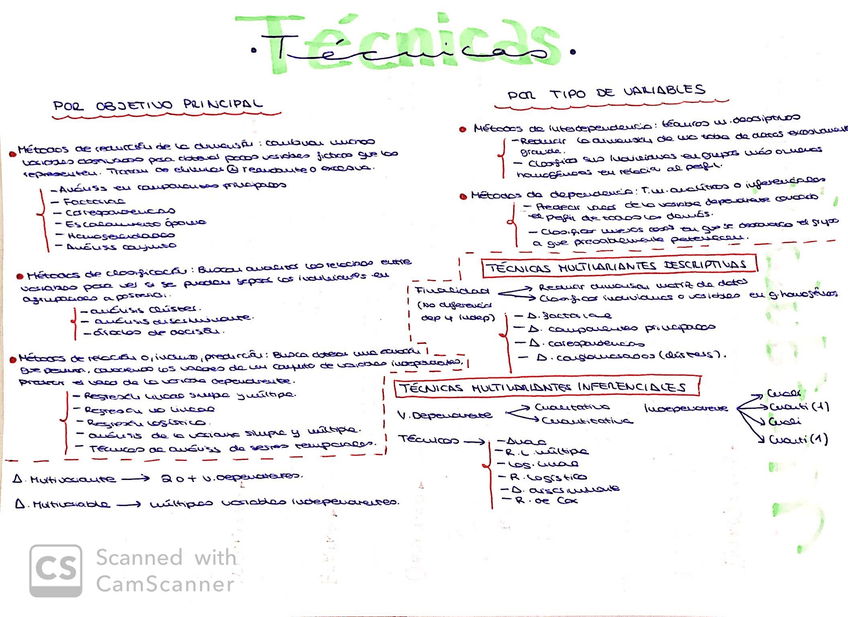 Técnicas
· Técnicas ·
POR OBJETIVO PRINCIPAL
• Métodos de reducción de la dimensión: combinan muchas
variables observadas para obtener pocas variables ficticias que las
representen. Tratan de eliminar redundante o excesiva.
- Análisis en componentes principales
- Factorial
- Correspondencias
- Escalamiento óptimo
- Homogeneidades
- Análisis conjunto
• Métodos de clasificación: Buscan analizar las relaciones entre
variables para ver si se pueden separar los individuos en
agrupaciones a posteriori.
- análisis clúster.
- análisis discriminante.
- árboles de decisión.
• Métodos de relación o, incluso, predicción: Busca obtener una
que permita, conociendo los valores de un conjunto de variables independientes,
predecir el valor de la variable dependiente.
- Regresión lineal simple y múltiple.
- Regresión no lineal
- Regresión logística.
- análisis de la varianza simple y múltiple.
- Técnicas de análisis de series temporales.
A. Multivariante → 2 o + v. dependientes.
A. Multivariable → múltiples variables independientes.
POR TIPO DE VARIABLES
• Métodos de interdependencia: técnicas m. descriptivas
- Reducir la dimensión de una tabla de datos excesivamente
grande.
- Clasifica sus individuos en grupos más o menos
homogéneos en relación al perfil.
• Métodos de dependencia: T.m. analíticas o inferenciales
- Predecir valor de la variable dependiente
el perfil de todas las demás.
- Clasificar nuevos casos en que se desconoce el grupo
a que probablemente pertenecen.
TÉCNICAS MULTIVARIANTES DESCRIPTIVAS
Finalidad → Reducir dimensión matriz de datos
(No diferencia → Clasificar individuos o variables en g. homogéneos
dep y indep)
- A. factorial
- A. componentes principales
- A. correspondencias
- A. conglomerados (clústers).
TÉCNICAS MULTIVARIANTES INFERENCIALES
V. Dependiente → Cualitativa
→ Cuantitativa
Independiente → Cuali
→ Cuanti (1)
→ Cuali
→ Cuanti (1)
Técnicas → - Anova
- R. L múltiple
- Log. lineal
- R. Logística
- A. discriminante
- R. de Cox
CS
Scanned with
CamScanner